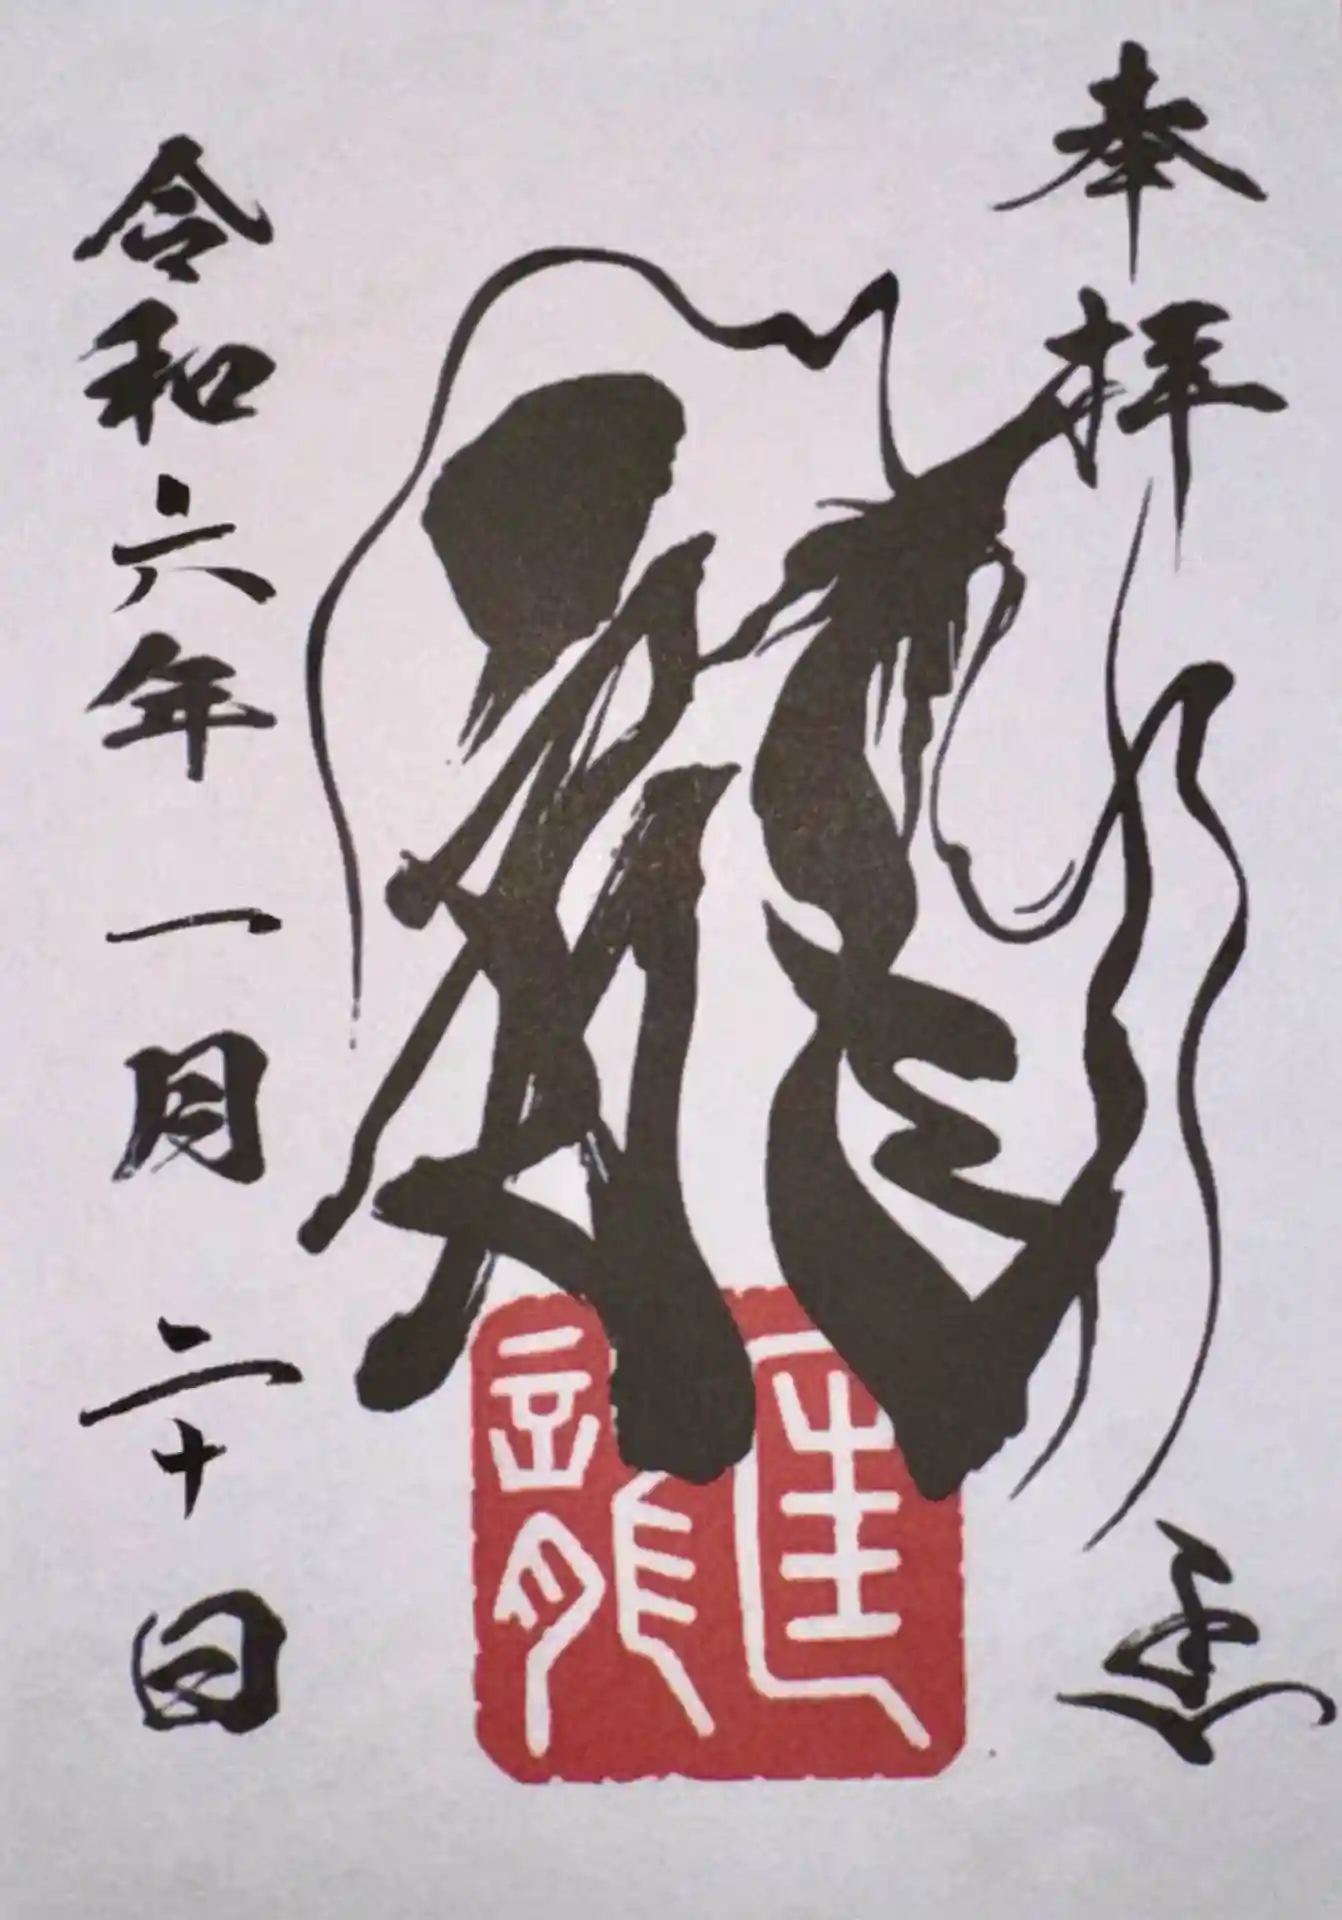 奉拝
龍
令和六年 一月 二十日